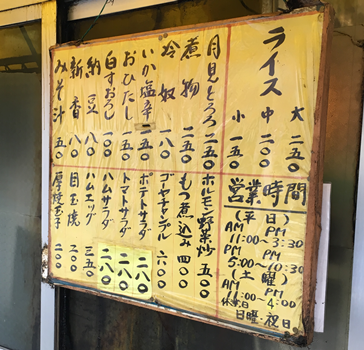 ライス
大 二五〇
中 二〇〇
小 一五〇
月見とろろ 二五〇
煮物 二五〇
冷奴 一八〇
いか塩辛 二五〇
おひたし 一五〇
白すおろし 一八〇
納豆 八〇
新香 一八〇
みそ汁 五〇
ホルモン野菜炒 五〇〇
もつ煮込み 四〇〇
ゴーヤチャンプル 六〇〇
ポテトサラダ 二八〇
トマトサラダ 二八〇
ハムサラダ 二八〇
ハムエッグ 三五〇
目玉焼 二〇〇
厚焼玉子 二〇〇
営業時間
(平日)
AM PM
11:00〜3:30
PM
5:00〜10:30
(土曜)
AM PM
11:00〜4:00
休業日
日曜・祝日